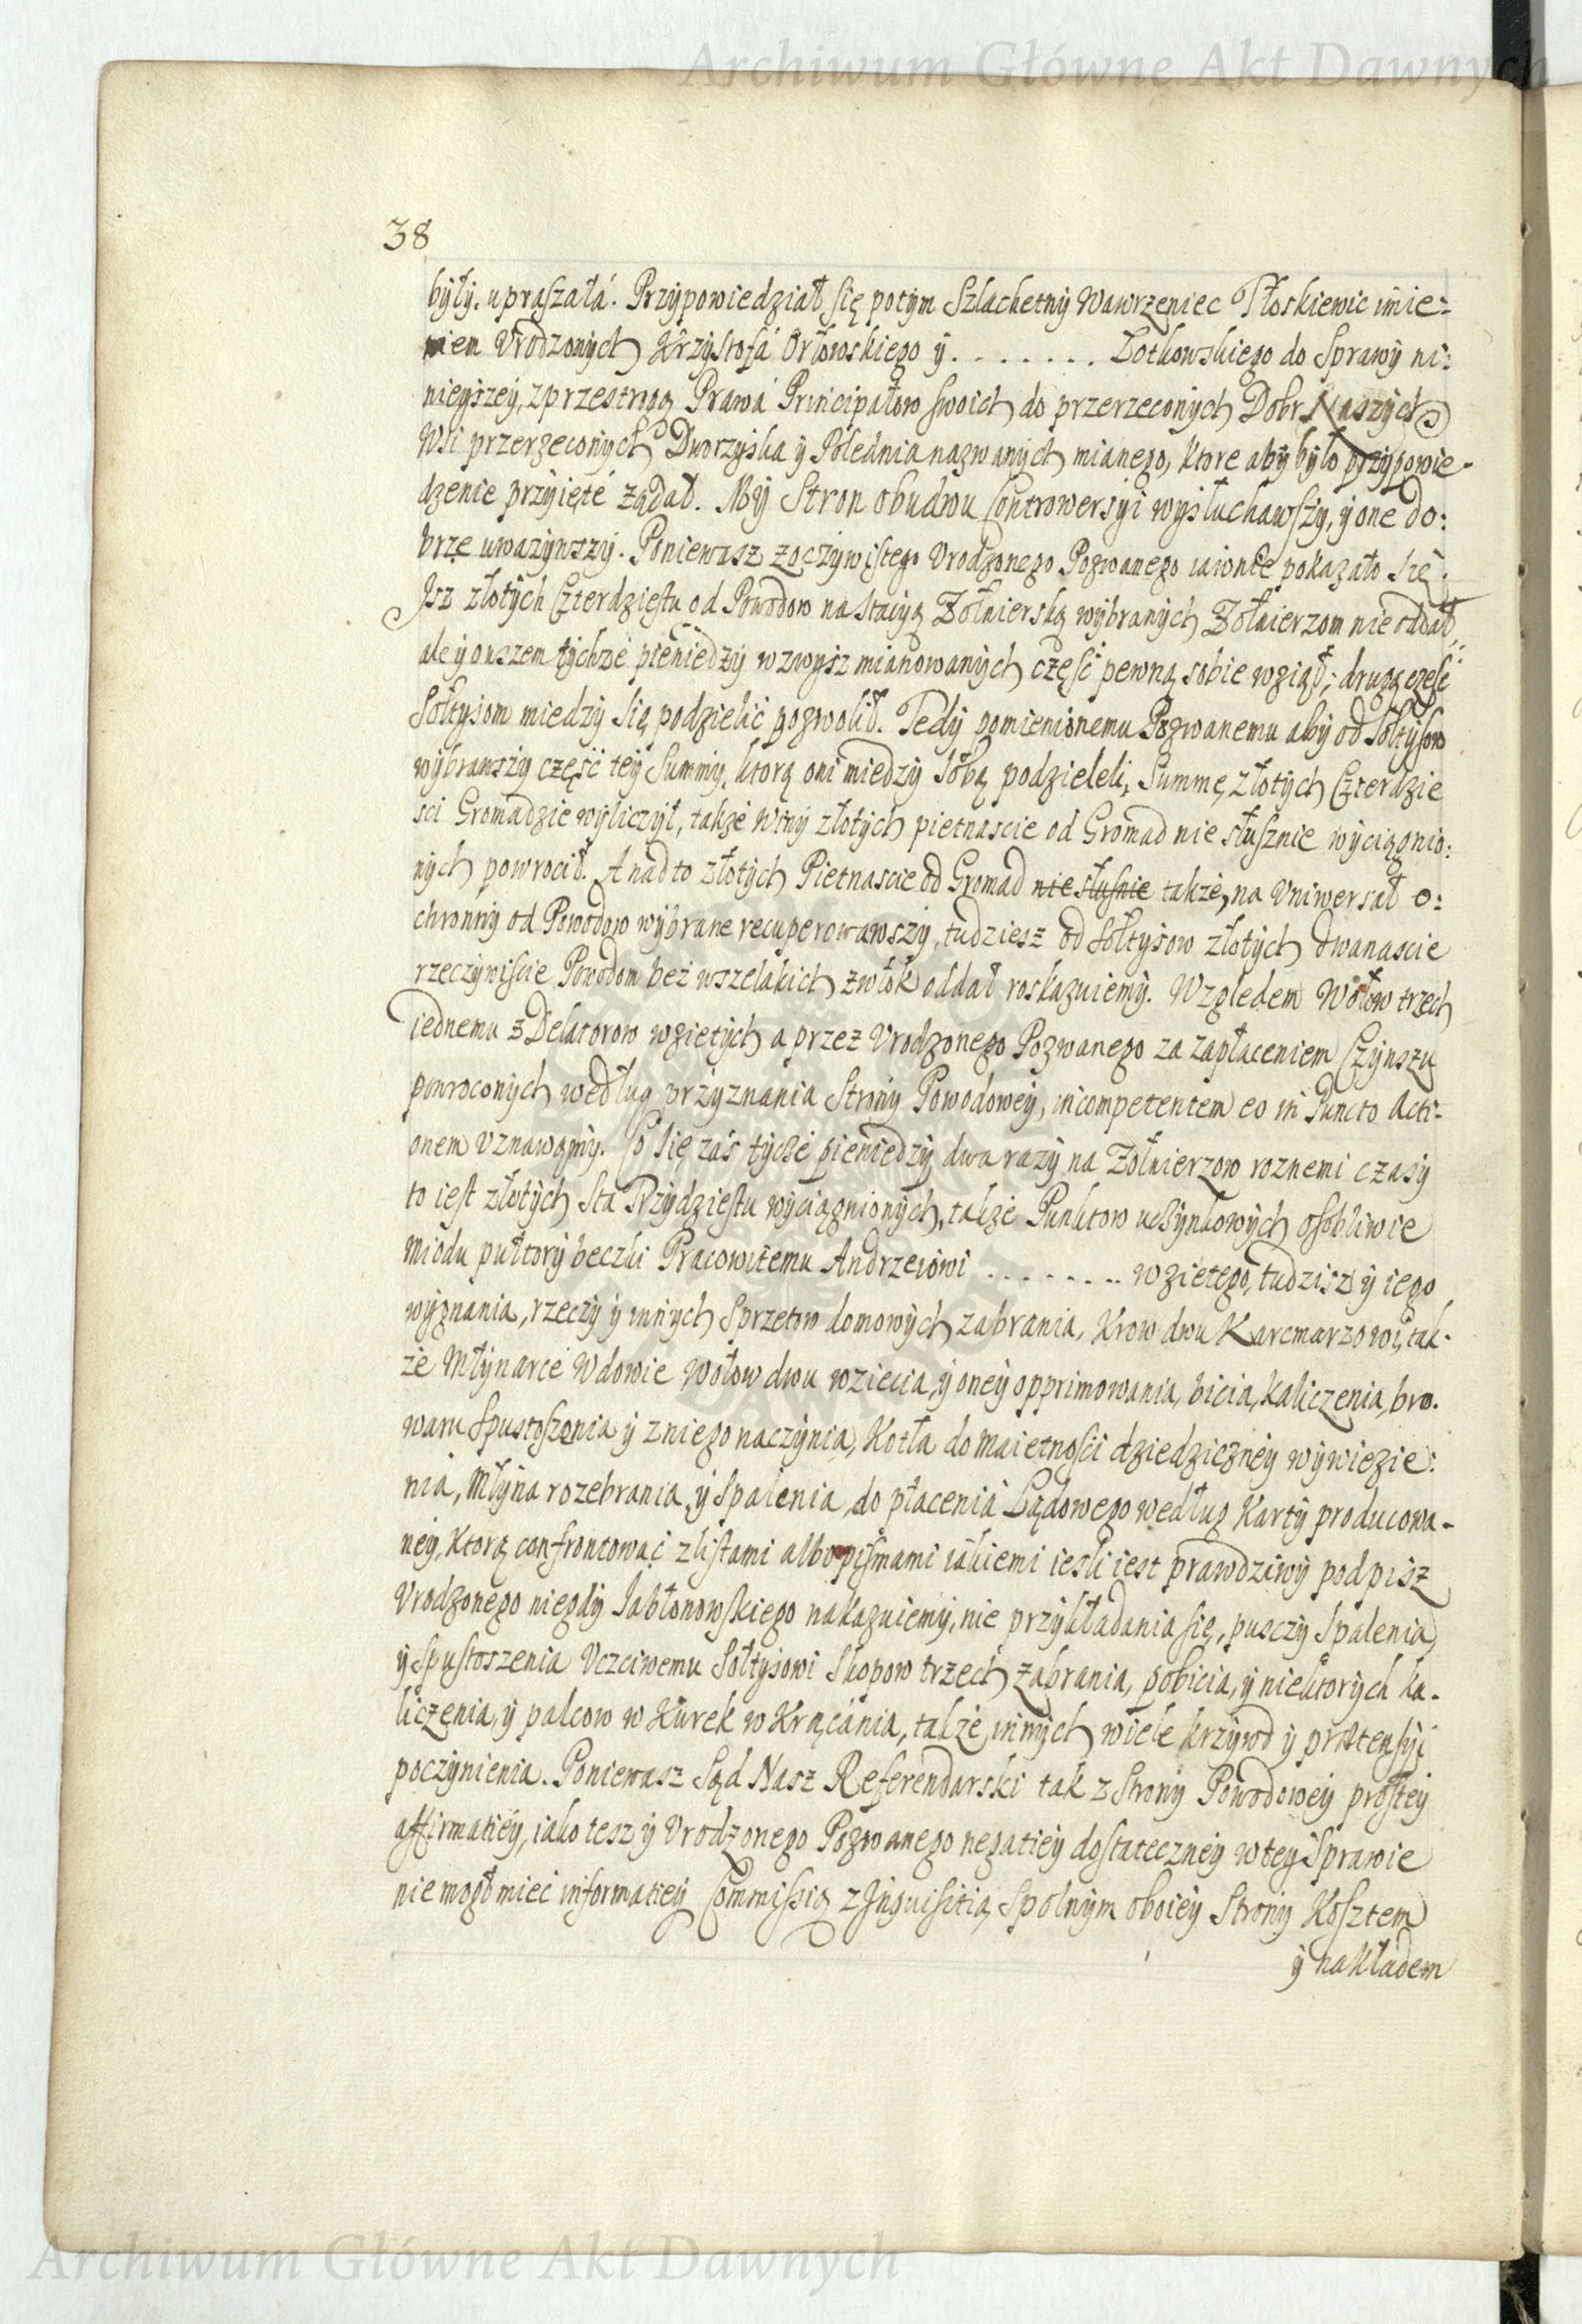 Archiwum Główne Akt Dawnych
38
były. upraszałá. Przypowiedział się potym Szlachetny Wawrzeniec Tłoskiewic imie:
niem Vrodzonych Krzysztofá Orłowskiego y . . . . . . . Zotkowskiego do Sprawy ni:
nieyszey, z przestrogą Prawá Principałow swoich do przerzeconych Dobr Naszych
Wsi przerzeconych Dworzyska y Połednia nazwanych mianego, ktore aby było przypowie-
dzenie przyięté żądał. My Stron obudwu Controwersyi wysłuchawszy, y one do:
brze uwazywszy. Poniewasz z oczywistego Vrodzonego Pozwanego iawnie pokazało się.
Jsz złotych Czterdziestu od Powodow na stacyą Zołnierską wybranych Zołnierzom nie oddał,
ale y owszem tychże pieniedzy wzwysz mianowanych część pewną sobie wziął; drugą część
Sołtysom miedzy się podzielić pozwolił. Tedy pomienionemu Pozwanemu aby od Sołtysow
wybrawszy część tey Summy, ktorą oni miedzy sobą podzieleli, Summę złotych Czterdzie
sci Gromadzie wyliczył, także winy złotych pietnascie od Gromad nie słusznie wyciągnio:
nych powrocił. A nadto złotych Pietnascie od Gromad nie słusnie także, na Vniwersał o:
chronny od Powodow wybrane recuperowawszy, tudziesz od Sołtysow złotych dwanascie
rzeczywiscie Powodom bez wszelakich zwłok oddał roskazuiemy. Względem Wołow trzech
iednemu z Delatorow wzietych a przez Vrodzonego Pozwanego za zapłaceniem Czynszu
powroconych według przyznánia Strony Powodowey, incompetentem eo in Puncto Acti-
onem Vznawamy. Co się zás tycze pieniedzy dwa razy na Zołnierzow roznemi czasy
to iest złotych Sta Trzydziestu wyciągnionych, także Punktow uczynkowych osobliwie
Miodu pułtory beczki Pracowitemu Andrzeiowi . . . . . . . . wzietego, tudzisz y iego
wygnania, rzeczy y innych Sprzetow domowych zabrania, Krow dwu Karcmarzowi, tak-
że Młynarce Wdowie Wołow dwu wziecia, y oney opprimowania, bicia, kaliczenia, bro-
waru Spustoszenia y z niego naczynia, Kotła do maietnosci dziedziczney wywiezie:
nia, Młyna rozebrania y Spalenia, do płacenia Lądowego według Karty producowa-
ney, ktorą confrontować z listami albo pismami iakiemi iesli iest prawdziwy podpisz
Vrodzonego niegdy Jabłonowskiego nakazuiemy, nie przykładania się, pusczy Spalenia,
y Spustoszenia Vczciwemu Sołtysowi Skopow trzech zabrania, pobicia, y niektorych ka-
liczenia, y palcow w Kurek wkrącánia, także innych wiele krzywd y prætensyi
poczynienia. Poniewasz Sąd Nasz Referendarski tak z Strony Powodowey prostey
affirmatiey, iako tesz y Vrodzonego Pozwanego negatiey dostateczney w tey Sprawie
nie mogł mieć informatiey Commissią z Jnquisitią Spolnym oboiey Strony Kosztem
y nakładem
Archiwum Główne Akt Dawnych